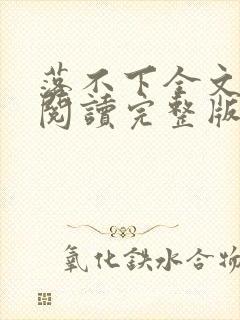 落不下全文
閱讀完整版
氧化鉄水合物